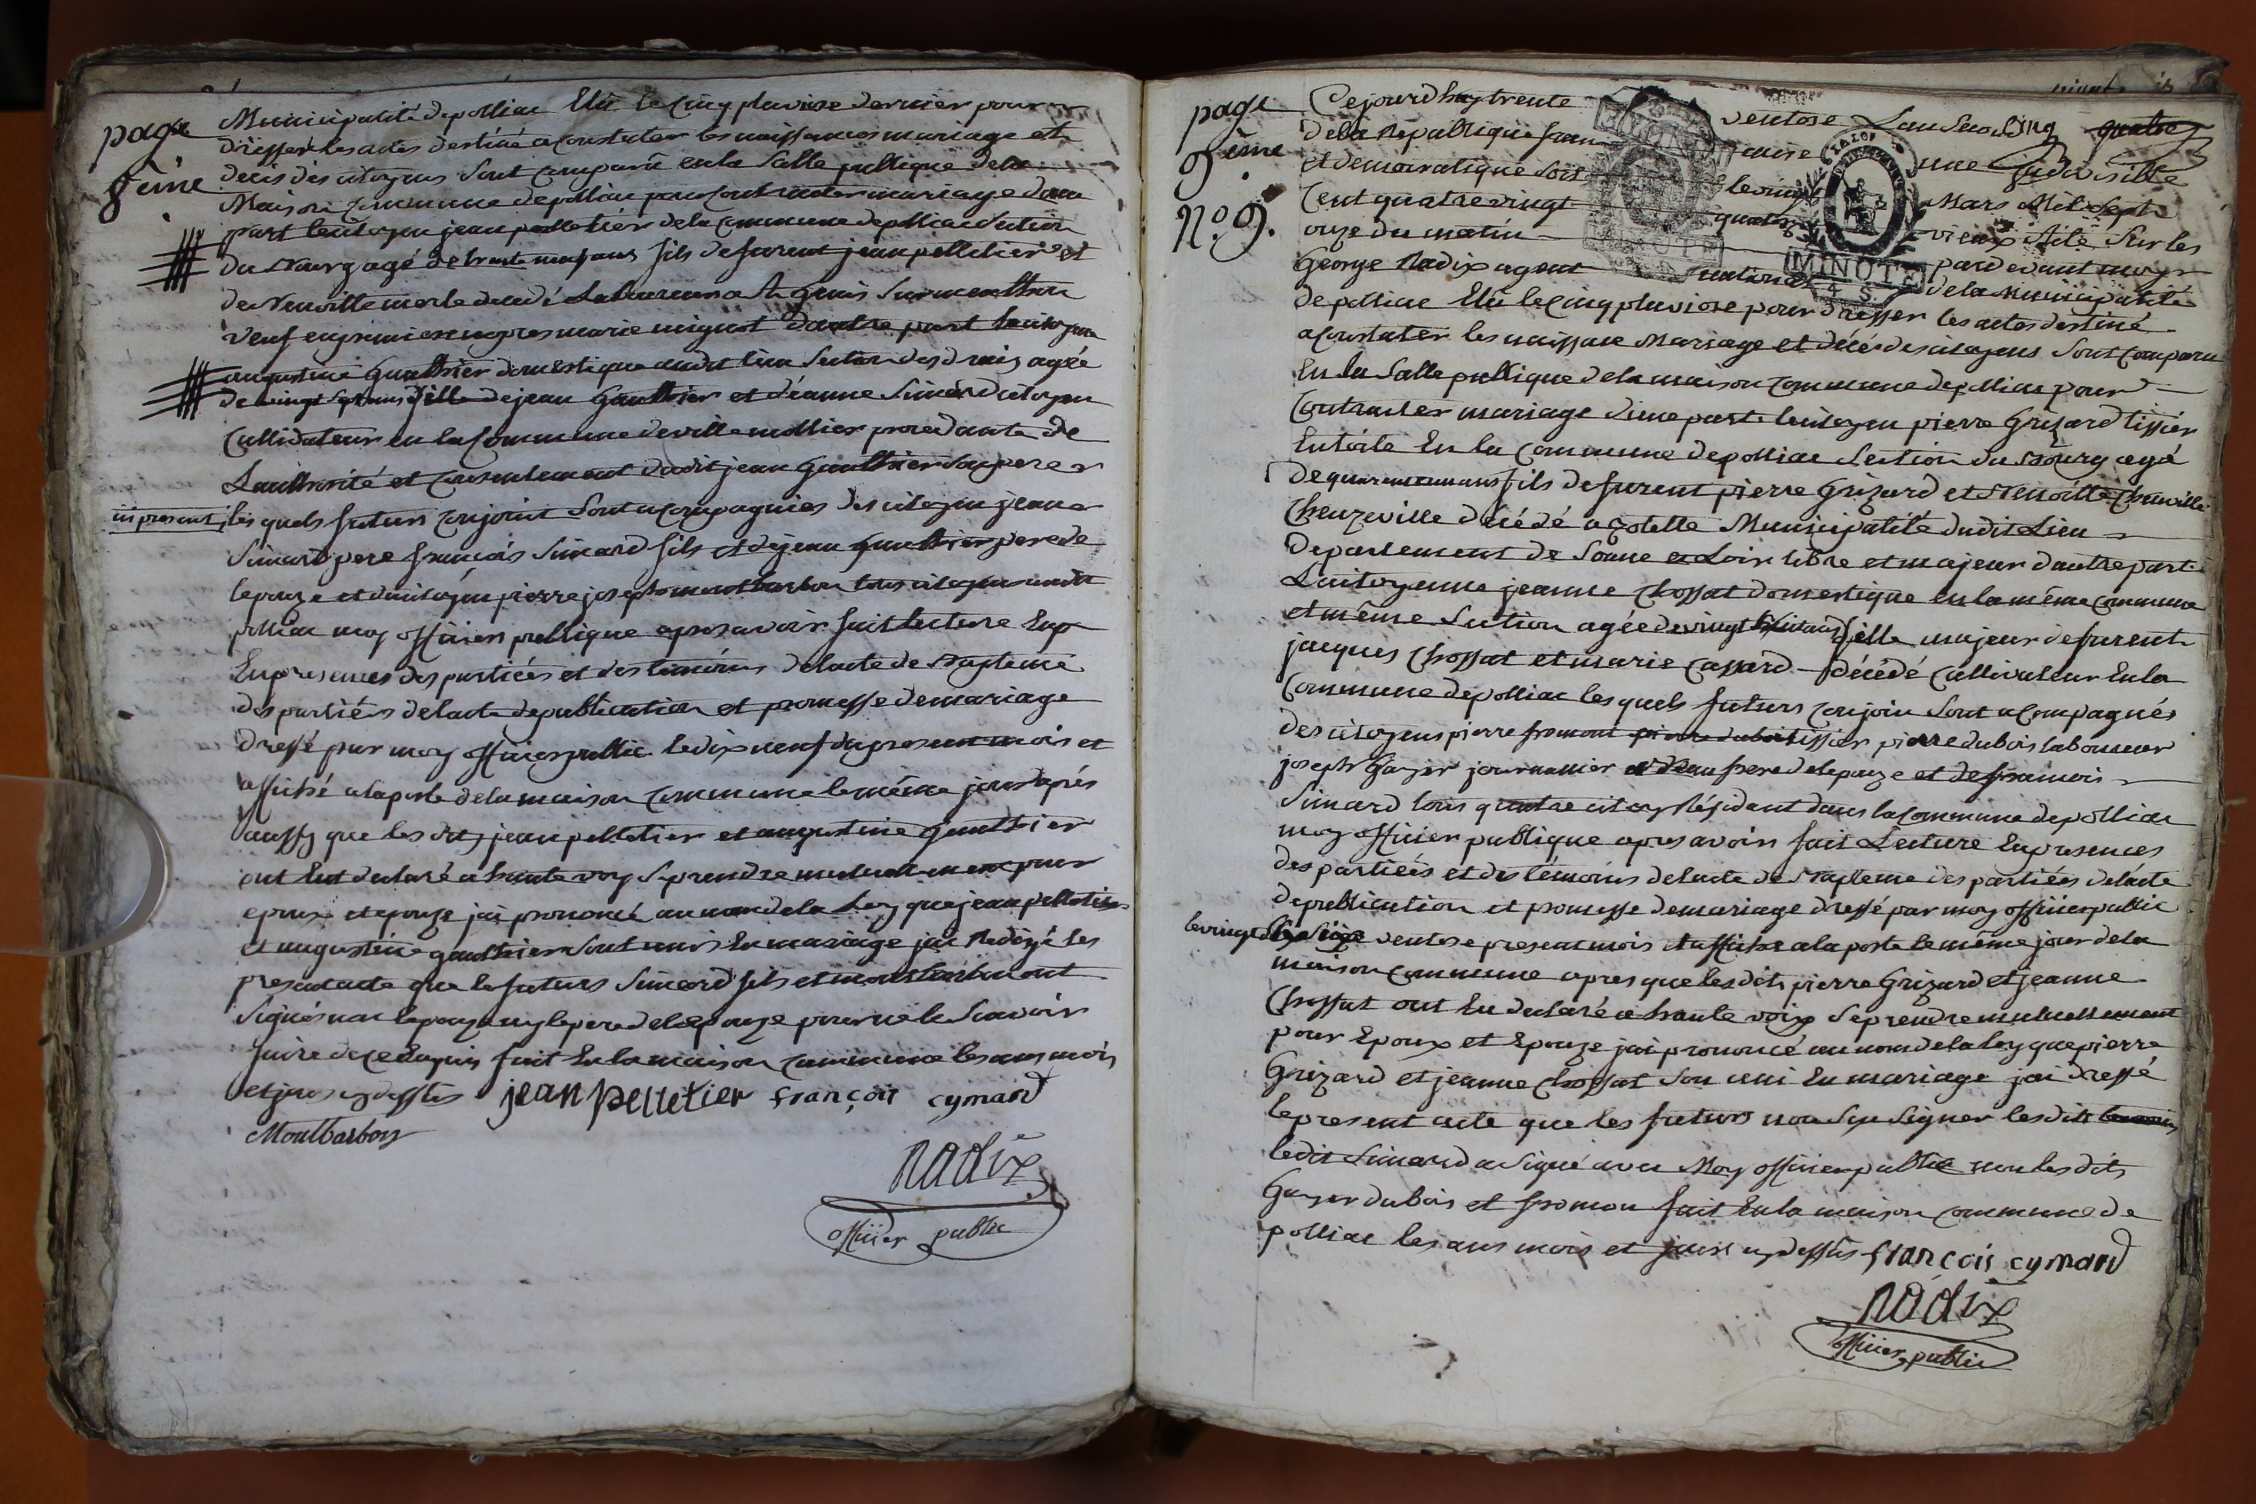 page
8eme
Municipalité de polliac Elu le cinq pluviose dernier pour
dresser les actes destiné a constater les naissances mariage et
decis des citoyens sont comparu en la Salle publique de la
Maison commune de polliac pour contracter mariage d'une
part le citoyen jean pelletier de la commune de polliac section
du Bourg agé de trente neuf ans fils de furent jean pelletier et
de Benoitte merle decedé Laboureur a
veuf en premiere nopces marie mignot d'autre part la citoyenne
augustine Gaulthier domestique audit lieu Section des agée
de vingt sept ans fille de jean Gaulthier et d'éanne Simard citoyen
Cultivateur en la Commune de villemottier procedante de
L'authorité et consentement dudit jean gaulthier son pere
icy present, les quels futurs conjoint sont acompagnies des citoyen jean
Simard pere francois Simard fils et de jean gaulthier pere de
lepouze et du citoyen pierre joseph montbarbon tous citoyen audit
polliac moy officier publique apres avoir fait lecture En p
En presences des partiées et des temoins de lacte de Bapteme
des partiées de lacte de publication et promesse de mariage
dressé par moy officier public le dix neuf du present mois et
affiché a la porte de la maison commune le même jour apres
aussy que les dits jean pelletier et augustine gaulthier
ont Eut declaré a haute voy se prendre mutuellement pour
epoux et epouze jai prononcé au nom de la Loy que jean pelletier
et augustine gaulthier sont unis En mariage jai Redigé les
present acte que le futurs Simard fils et montbarbon ont
Signés non lepouze ny le pere de lepouze pour ne le Scavoir
faire de ce Enquis fait En la maison commune les ans mois
et jour cy dessus jean pelletier françois cymard
Montbarbon
Nadix
officier public
page
9eme
N.o 9.
Cejourdhuy trente ventose Lan Second quatre
de la Republique francaise une Indivisible
et democratique Soit le vingt Mars Mil Sept
Cent quatre vingt quatorze vieux stile Sur les
onze du matin pardevant moy
George Nadix agent national de la Municipalité
de polliac Elu le cinq pluviose pour dresser les actes destiné
a constater les naissance Mariage et décès des citoyens Sont comparu
En la Salle publique de la maison commune de polliac pour
Contracter mariage d'une part le citoyen pierre Grizard tissier
En toile En la Commune de polliac Section du Bourg agé
de quarente un ans fils de furent pierre Grizard et Benoitte Cheuzeville
Cheuzeville décédé a Municipalité dudit Lieu
Departement de Soane et Loir libre et majeur d'autre part
La citoyenne jeanne Chossat domestique en la même commune
et même Section agée de vingt huit ans fille majeur de furent
jacques Chossat et marie Cassard décédé Cultivateur En la
Commune de polliac les quels futurs conjoin sont acompagnés
des citoyens pierre fromont pierre dubois tissier pierre dubois laboureur
joseph Gayer journallier et beau frere de lepouze et de francois
Simard tous quatre citoy Résidant dans la Commune de polliac
moy officier publique apres avoir fait Lecture En presences
des partiéés et des témoins de lacte de Bapteme des partiées de lacte
de publication et promesse de mariage dressé par moy officier public
le vingt ventose present mois et affiché a la porte le même jour de la
maison commune apres que les dits pierre Grizard et jeanne
Chossat ont Eu declaré a haute voix Se prendre mutuellement
pour Epoux et Epouze jai prononcé au nom de la Loy que pierre
Grizard et jeanne Chossat Son uni En mariage jai dressé
le present acte que les futurs non Sçu Signer les dits temoins
ledit Simard a Signé avec Moy officier public non les dits
Gayer dubois et fromon fait En la maison commune de
polliac les ans mois et jours cy dessus françois cymard
Nadix
officier public
MINUTE
4 S.